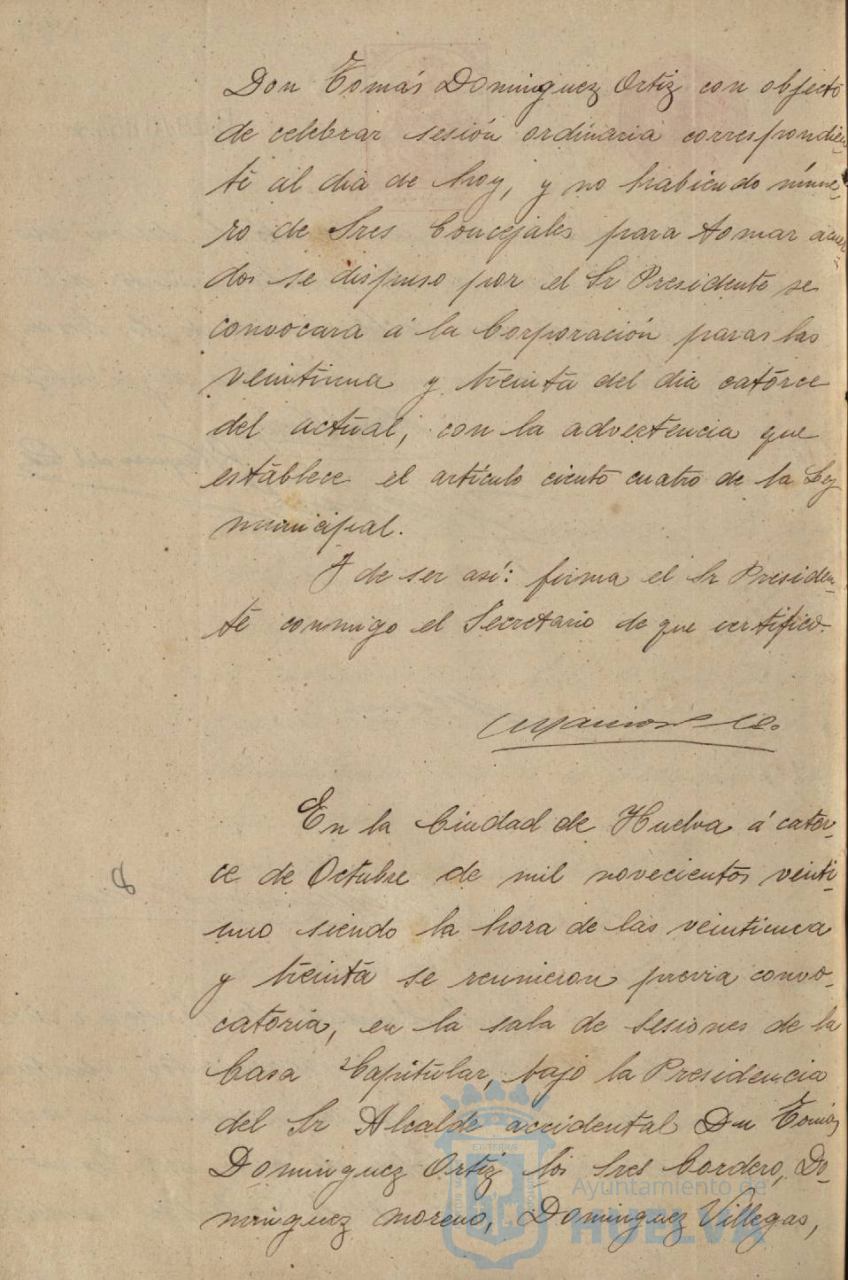 Don Tomás Dominguez Ortiz con objeto
de celebrar sesión ordinaria correspondien
te al dia de hoy, y no habiendo núme-
ro de Sres Concejales para tomar acuer
dos se dispuso por el Sr Presidente se
convocara á la Corporación para las
veintiuna y treinta del dia catorce
del actual, con la advertencia que
establece el artículo ciento cuatro de la Ley
municipal.
Y de ser así: firma el Sr Presiden-
te conmigo el Secretario de que certifico.
En la Ciudad de Huelva á cator-
ce de Octubre de mil novecientos veinti-
uno siendo la hora de las veintiuna
y treinta se reunieron previa convo-
catoria, en la sala de sesiones de la
Casa Capitular, bajo la Presidencia
del Sr Alcalde accidental Dn Tomás
Dominguez Ortiz los Sres Cordero, Do-
minguez Moreno, Dominguez Villegas,
Ayuntamiento de
HUELVA